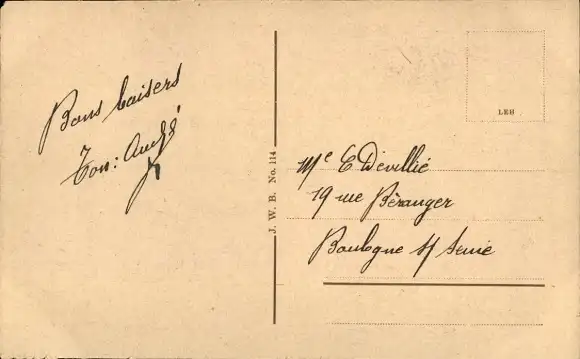 Bons baisers
Ton: André
J. W. B. No. 114
LEH
Me E Dévillié
19 rue Béranger
Boulogne s/ Seine